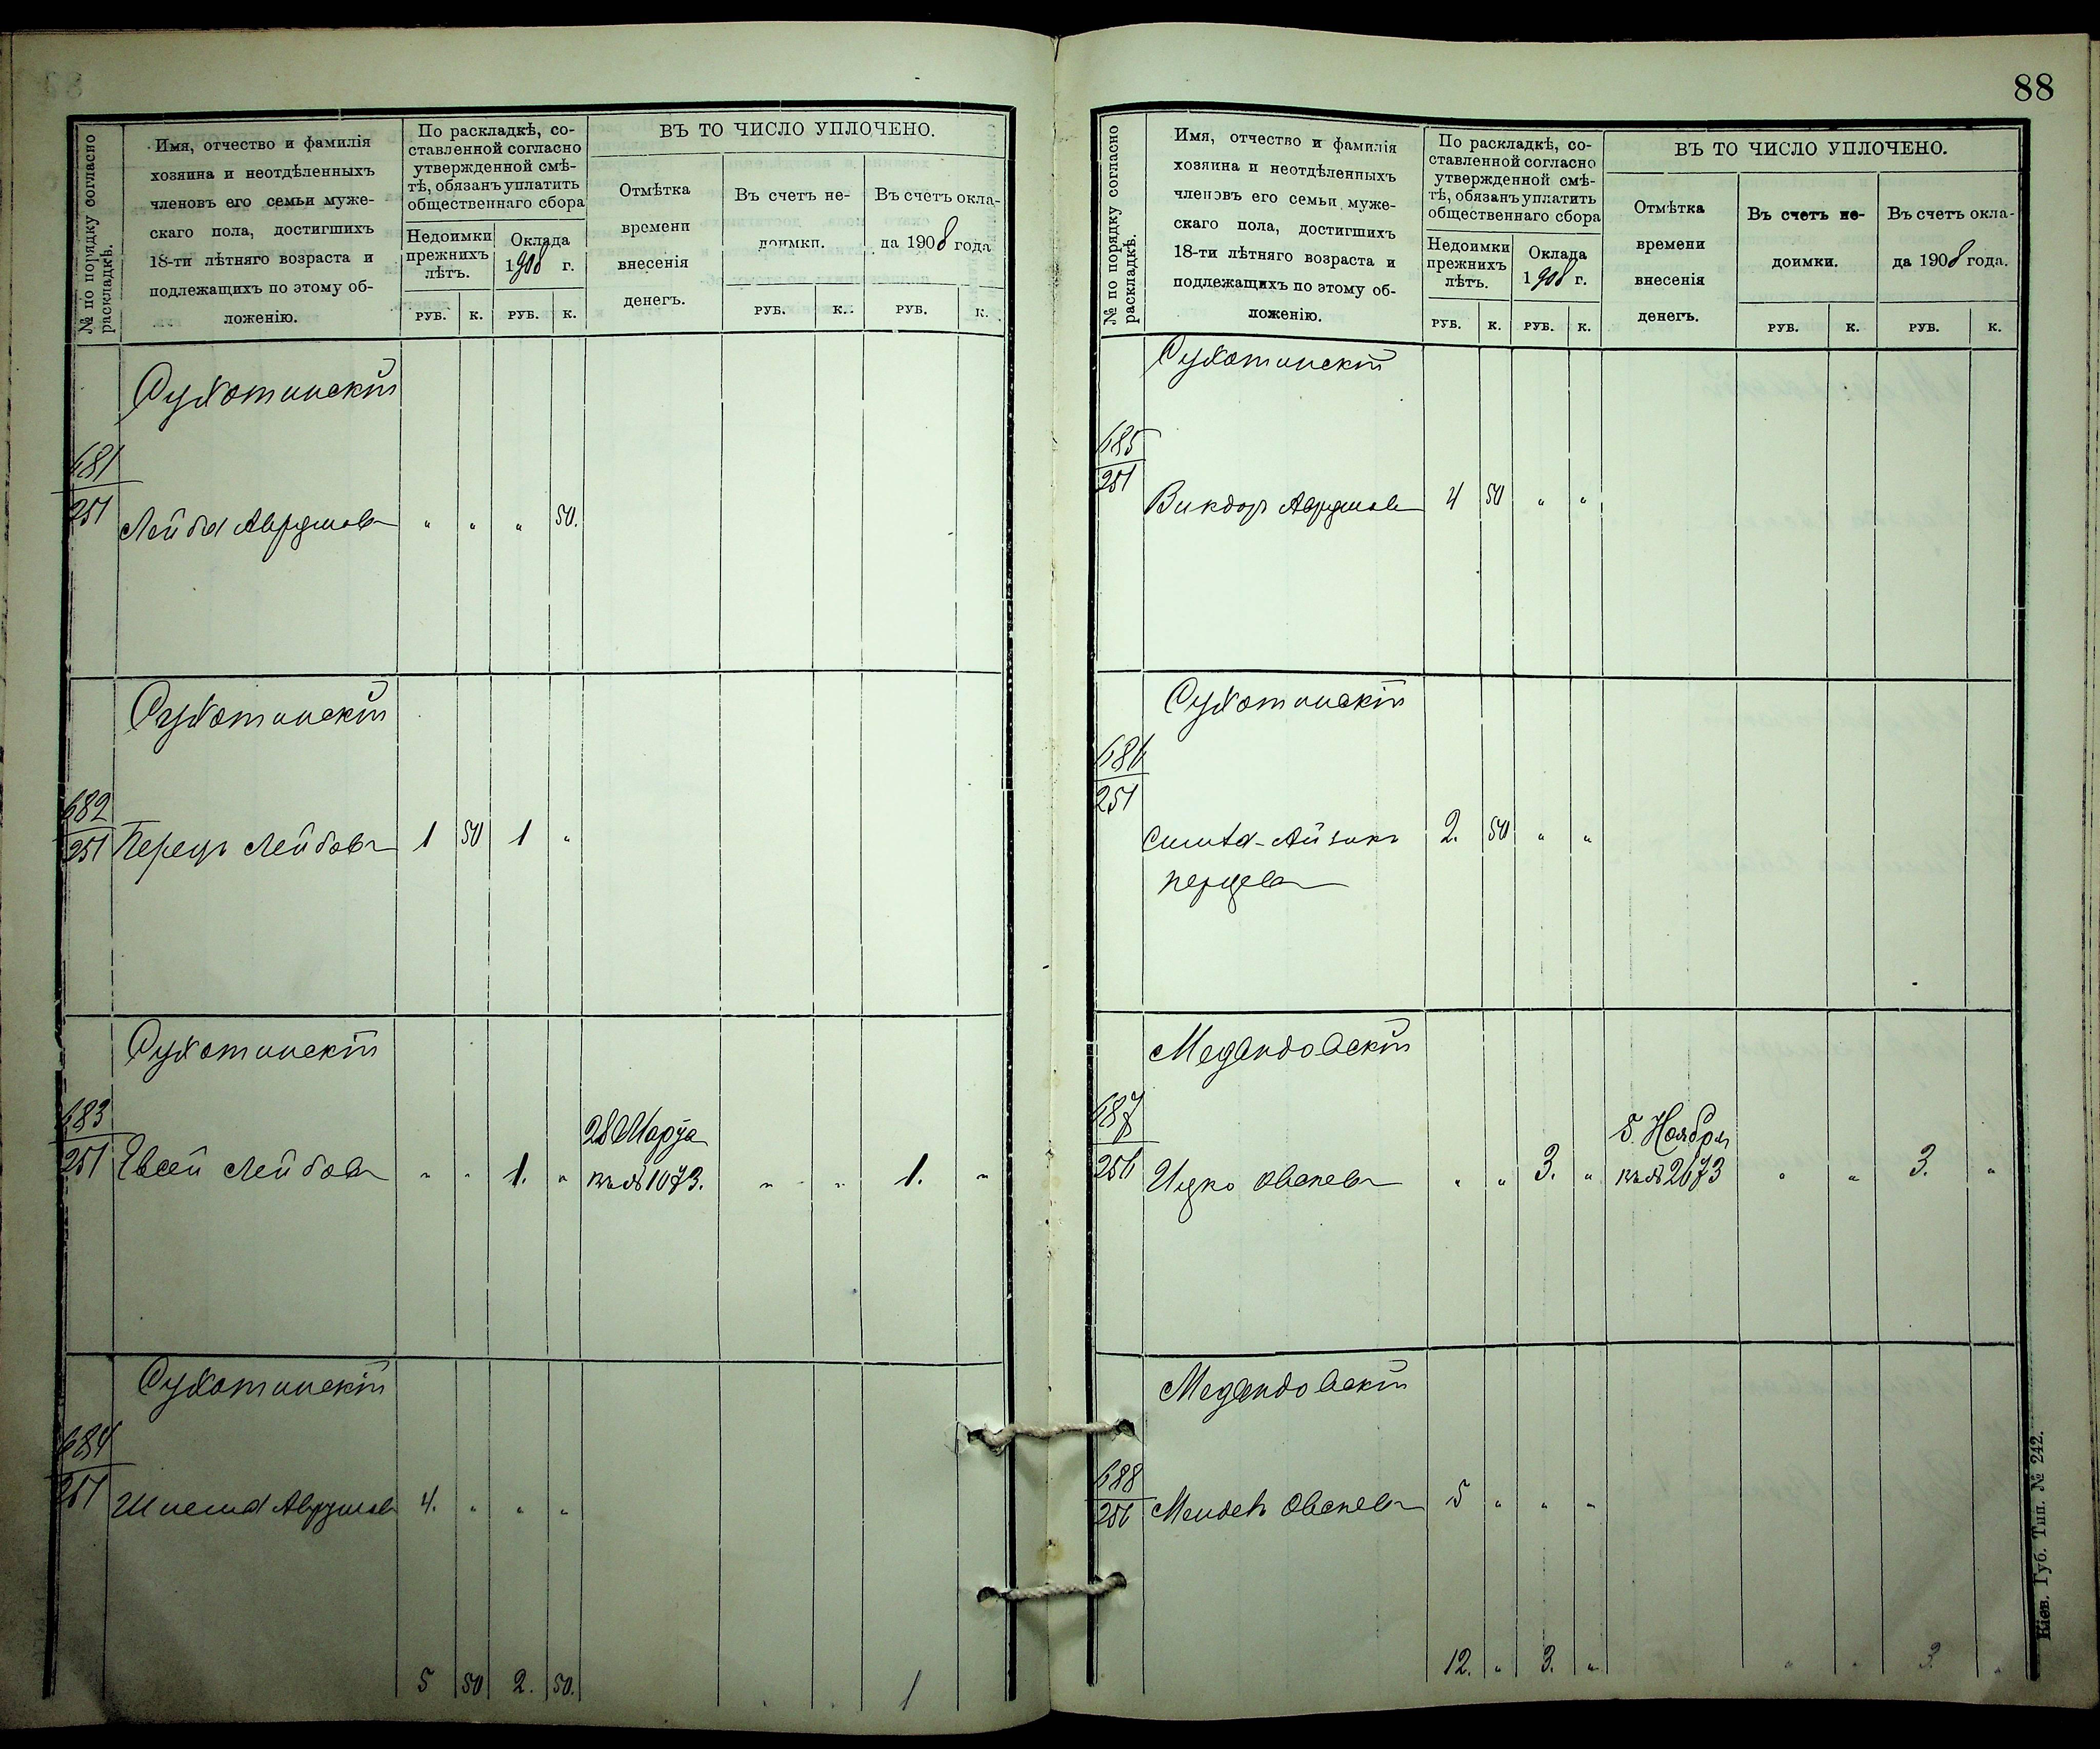 88
№ по порядку согласно
раскладкѣ.
Имя, отчество и фамилія
хозяина и неотдѣленныхъ
членовъ его семьи муже-
скаго пола, достигшихъ
18-ти лѣтняго возраста и
подлежащихъ по этому об-
ложенію.
По раскладкѣ, со-
ставленной согласно
утвержденной смѣ-
тѣ, обязанъ уплатить
общественнаго сбора
Недоимки
прежнихъ
лѣтъ.
Оклада
1908 г.
РУБ. К. РУБ. К.
ВЪ ТО ЧИСЛО УПЛОЧЕНО.
Отмѣтка
времени
внесенія
денегъ.
Въ счетъ не-
доимки.
Въ счетъ окла-
да 1908 года
РУБ. К. РУБ. К.
Сухотинскій
681
251
Лейба Аврумовъ " " " 50.
Сухотинскій
682
251
Перецъ Лейбовъ 1 50 1 "
Сухотинскій
683
251
28 Марта
Евсей Лейбовъ " " 1. " кв № 1073. " " 1. "
Сухотинскій
684
251
Шлема Аврумовъ 4. " " "
5 50 2. 50. 1
№ по порядку согласно
раскладкѣ.
Имя, отчество и фамилія
хозяина и неотдѣленныхъ
членовъ его семьи муже-
скаго пола, достигшихъ
18-ти лѣтняго возраста и
подлежащихъ по этому об-
ложенію.
По раскладкѣ, со-
ставленной согласно
утвержденной смѣ-
тѣ, обязанъ уплатить
общественнаго сбора
Недоимки
прежнихъ
лѣтъ.
Оклада
1908 г.
РУБ. К. РУБ. К.
ВЪ ТО ЧИСЛО УПЛОЧЕНО.
Отмѣтка
времени
внесенія
денегъ.
Въ счетъ не-
доимки.
Въ счетъ окла-
да 1908 года.
РУБ. К. РУБ. К.
Сухотинскій
685
251
Викдоръ Аврумовъ 4 50 " "
Сухотинскій
686
251
Симха-Айзикъ 2. 50 " "
Перцевъ
687
256
5 Ноября
Ицко Овсеевъ " " 3. " кв № 2673 " " 3. "
688
256
Мендель Овсеевъ 5 " " "
12. " 3. " " " 3. "
Кіев. Губ. Тип. № 242.